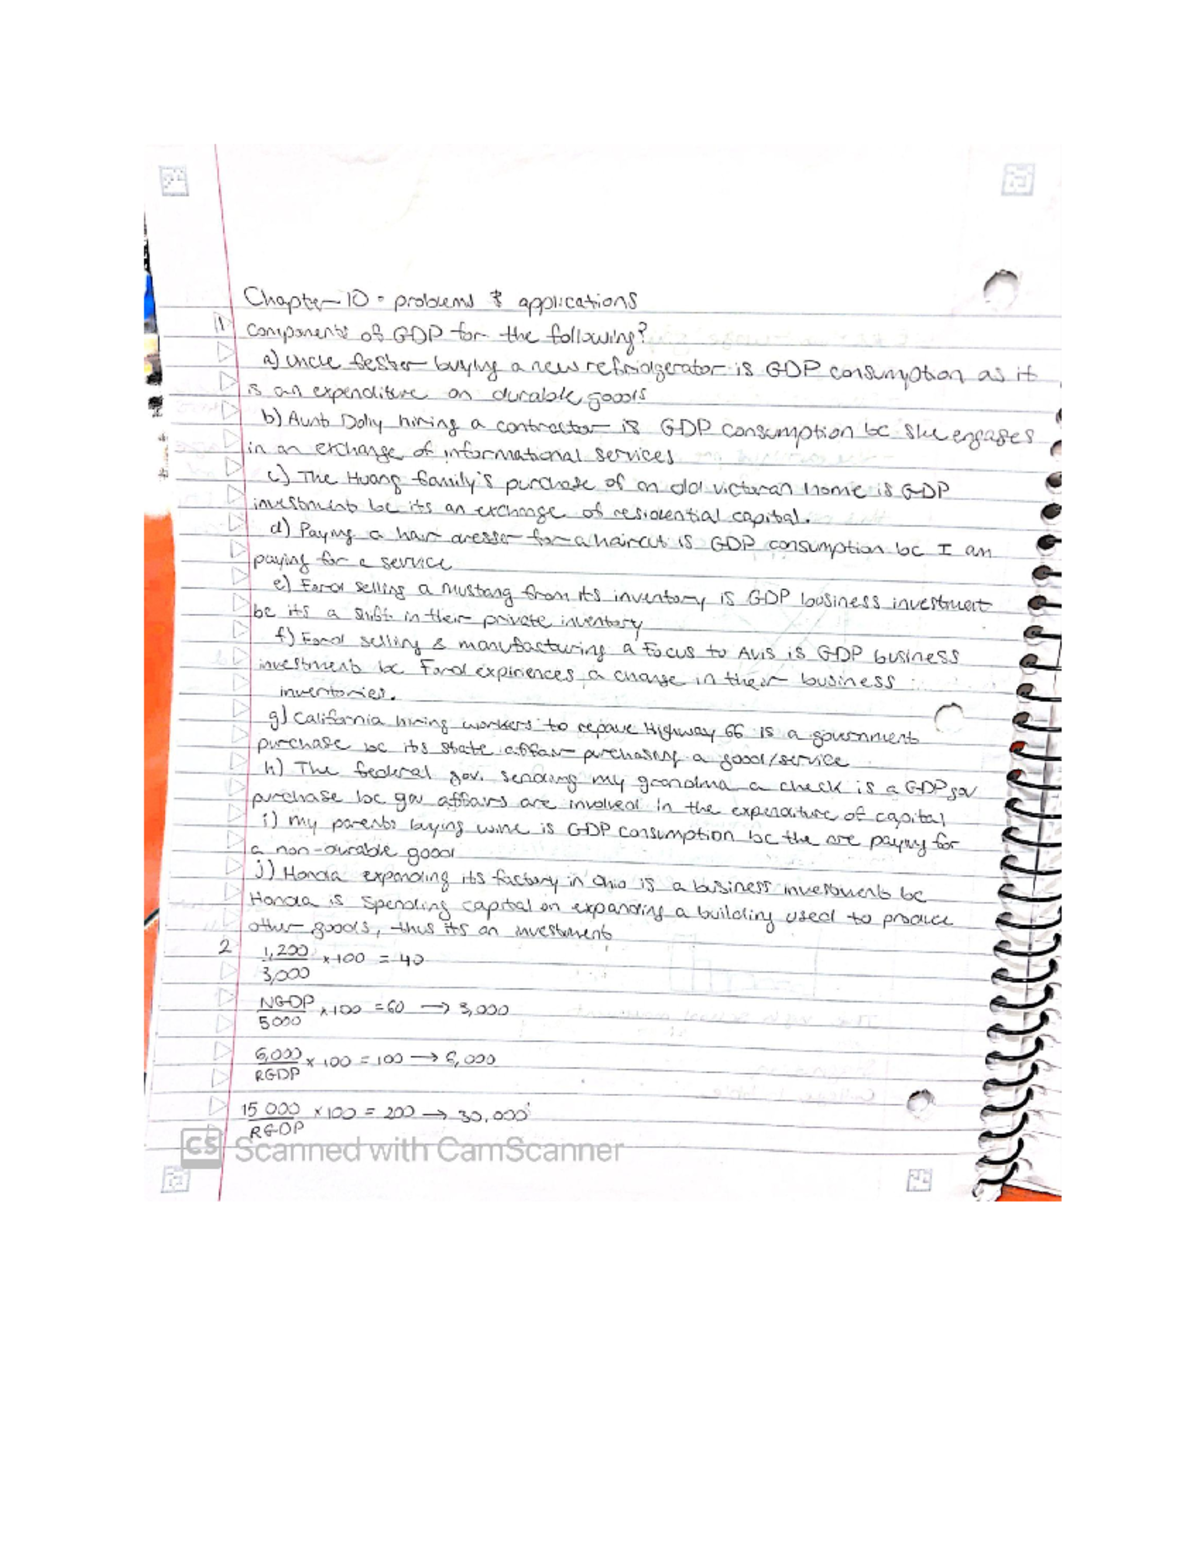 Chapter 10 - problems & applications
1 Components of GDP for the following?
a) Uncle Fester buying a new refridgerator is GDP consumption as it
is an expenditure on durable goods
b) Aunt Dolly hiring a contractor is GDP consumption bc she engages
in an exchange of informational services
c) The Huang family's purchase of an old victorian home is GDP
investment bc its an exchange of residential capital.
d) Paying a hair dresser for a haircut is GDP consumption bc I am
paying for a service
e) Ford selling a Mustang from its inventory is GDP business investment
bc its a shift in their private inventory
f) Ford selling & manufacturing a Focus to Avis is GDP business
investment bc Ford expiriences a change in their business
inventories.
g) California hiring workers to repave Highway 66 is a government
purchase bc its state affair purchasing a good/service
h) The federal gov. sending my grandma a check is a GDP gov
purchase bc gov affairs are involved in the expenditure of capital
i) my parents buying wine is GDP consumption bc the are paying for
a non-durable good
j) Honda expanding its factory in Ohio is a business investment bc
Honda is spending capital on expanding a building used to produce
other goods, thus its an investment
2 1,200 x 100 = 40
3,000
NGDP x 100 = 60 → 3,000
5000
6,000 x 100 = 100 → 6,000
RGDP
15 000 x 100 = 200 → 30,000
RGDP
CS Scanned with CamScanner